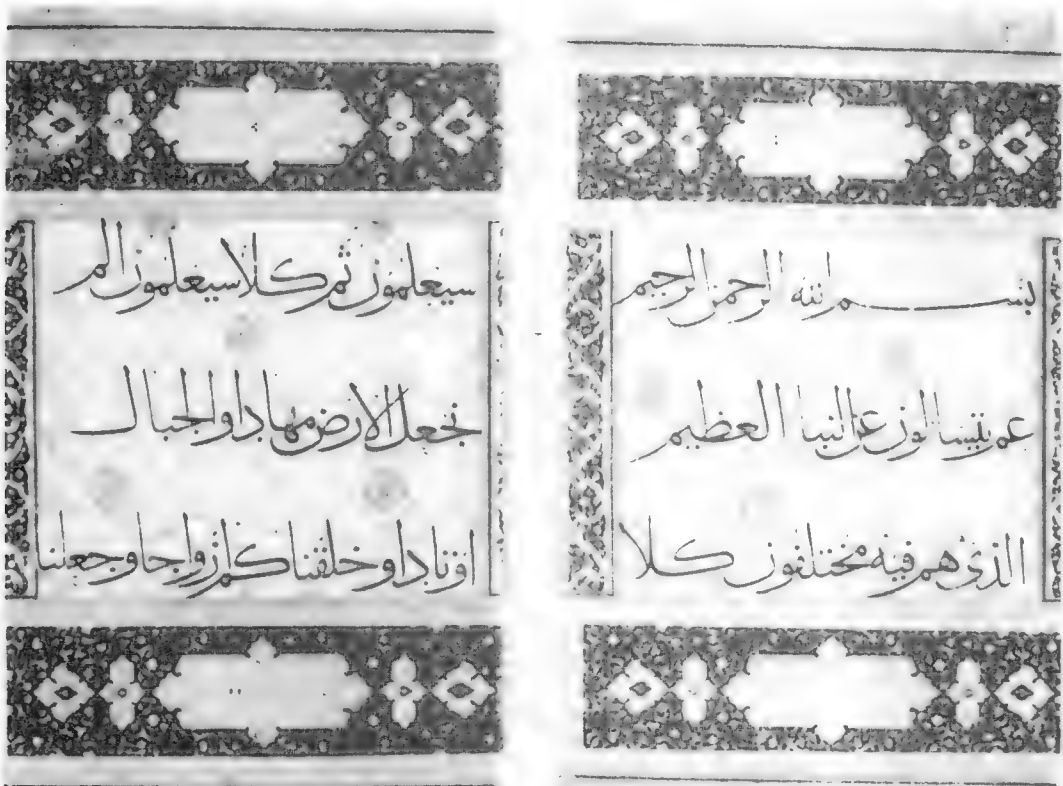 بسم الله الرحمن الرحيم
عم يتسالون عن النبا العظيم
الذي هم فيه مختلفون كلا
سيعلمون ثم كلا سيعلمون الم
نجعل الارض مهادا والجبال
اوتادا وخلقناكم ازواجا وجعلنا